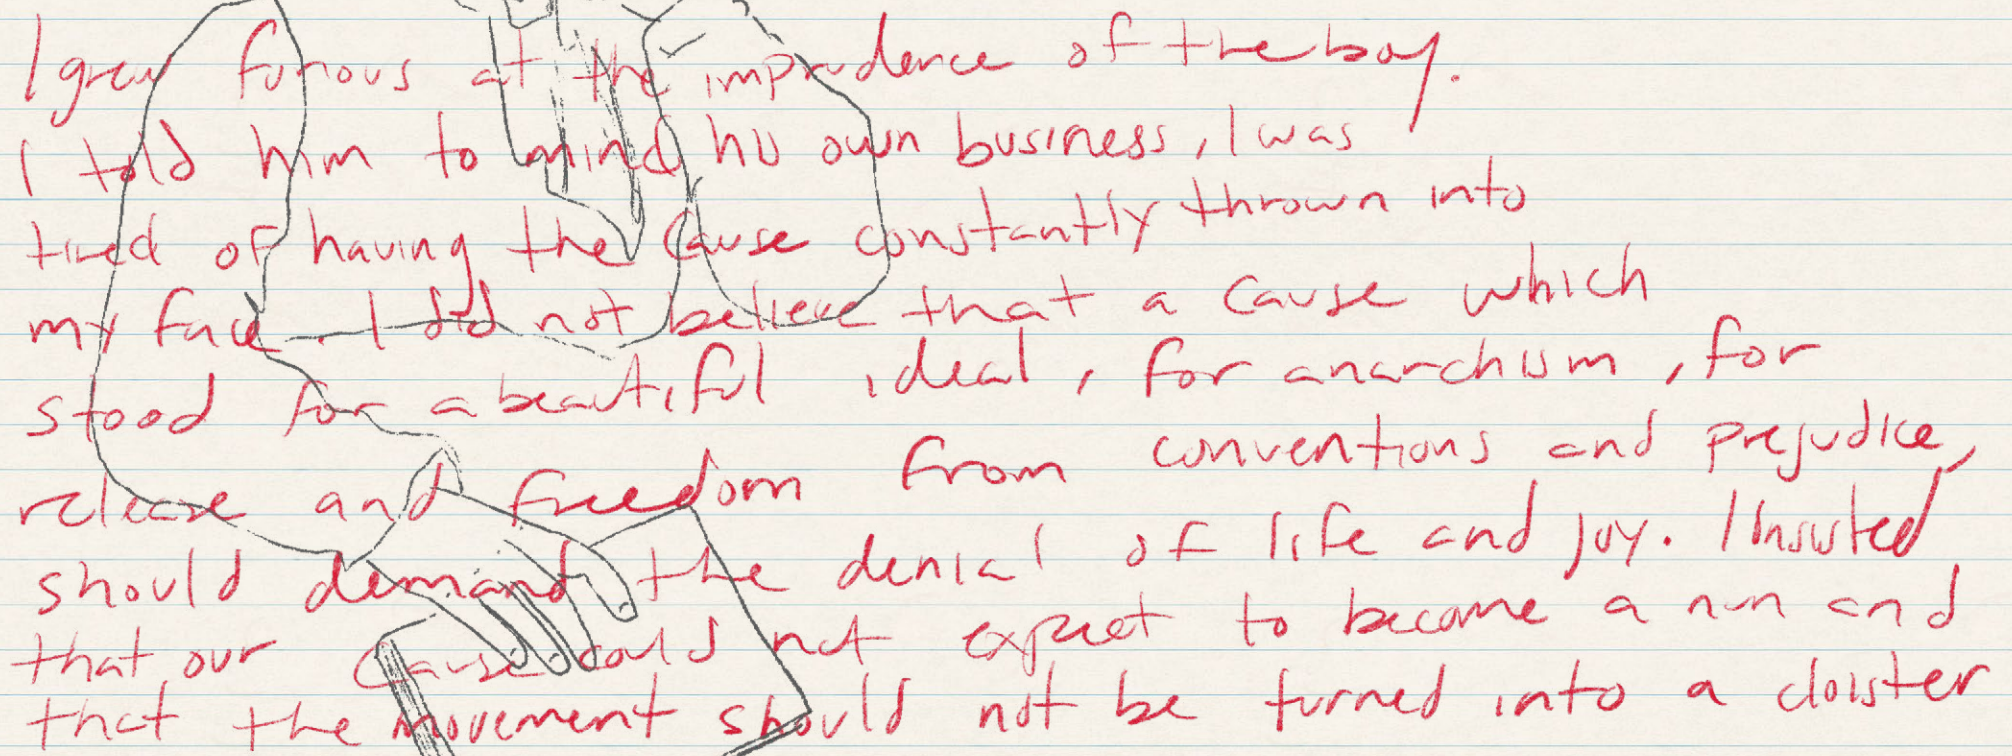 I grew furious at the imprudence of the boy.
I told him to mind his own business, I was
tired of having the Cause constantly thrown into
my face. I did not believe that a Cause which
stood for a beautiful ideal, for anarchism, for
release and freedom from conventions and prejudice,
should demand the denial of life and joy. I insisted
that our Cause could not expect to become a nun and
that the movement should not be turned into a cloister